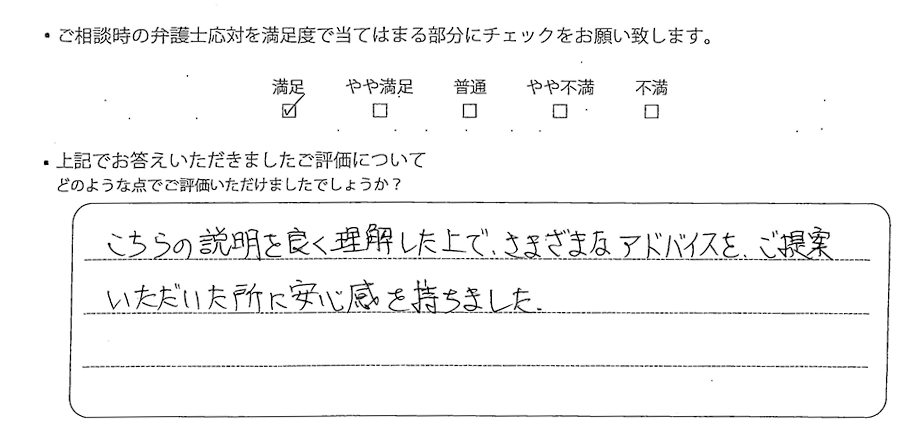 ・ご相談時の弁護士応対を満足度で当てはまる部分にチェックをお願い致します。
満足 やや満足 普通 やや不満 不満
☑ □ □ □ □
・上記でお答えいただきましたご評価について
どのような点でご評価いただけましたでしょうか？
こちらの説明を良く理解した上で、さまざまなアドバイスを、ご提案
いただいた所に安心感を持ちました。